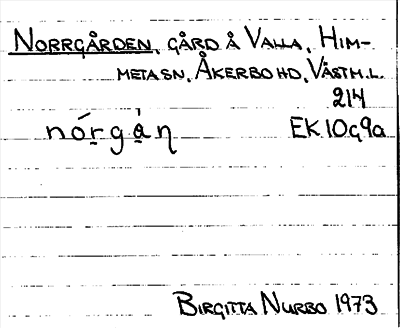 NORRGÅRDEN, GÅRD Å VALLA, HIM-
METASN, ÅKERBO HD, VÄSTM.L.
214
nórgàṇ EK 10G9a
BIRGITTA NURBO 1973